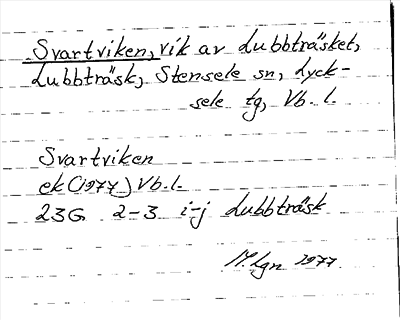 Svartviken, vik av Lubbträsket,
Lubbträsk, Stensele sn, Lyck-
sele tg, Vb. l.
Svartviken
ek (1977) Vb.l.
23G 2-3 i-j Lubbträsk
M.Lgn 1977.